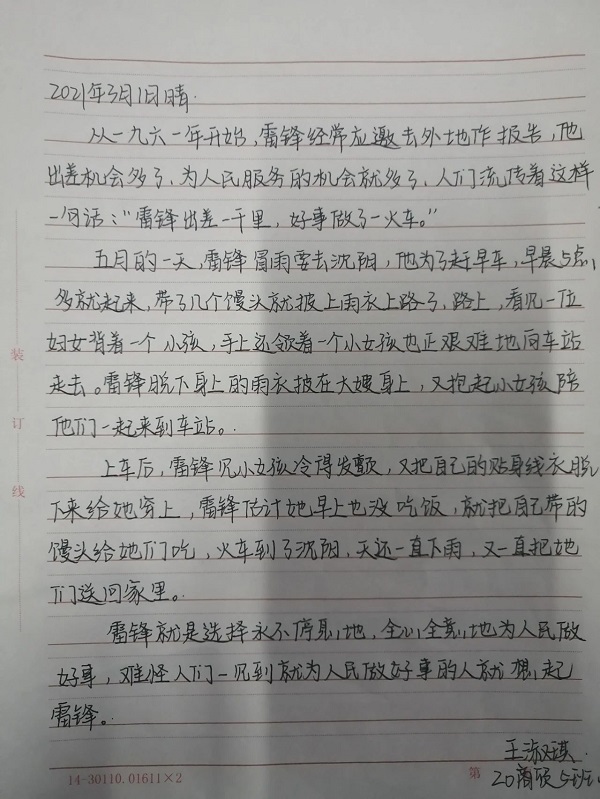 2021年3月1日晴.
从一九六一年开始,雷锋经常应邀去外地作报告,他
出差机会多了,为人民服务的机会就多了,人们流传着这样
一句话:“雷锋出差一千里,好事做了一火车。”
五月的一天,雷锋冒雨要去沈阳,他为了赶早车,早晨5点
多就起来,带了几个馒头就披上雨衣上路了,路上,看见一位
妇女背着一个小孩,手上还领着一个小女孩也正艰难地向车站
走去。雷锋脱下身上的雨衣披在大嫂身上,又抱起小女孩陪
他们一起来到车站。
上车后,雷锋见小女孩冷得发颤,又把自己的贴身线衣脱
下来给她穷上,雷锋估计她早上也没吃饭,就把自己带的
馒头给她们吃,火车到了沈阳,天还一直下雨,又一直把她
们送回家里。
雷锋就是选择永不停息地,全心全意地为人民做
好事,难怪人们一见到就为人民做好事的人就想起
雷锋。
王淑琪.
20商硕5班
装
订
线
14-30110.01611×2
第